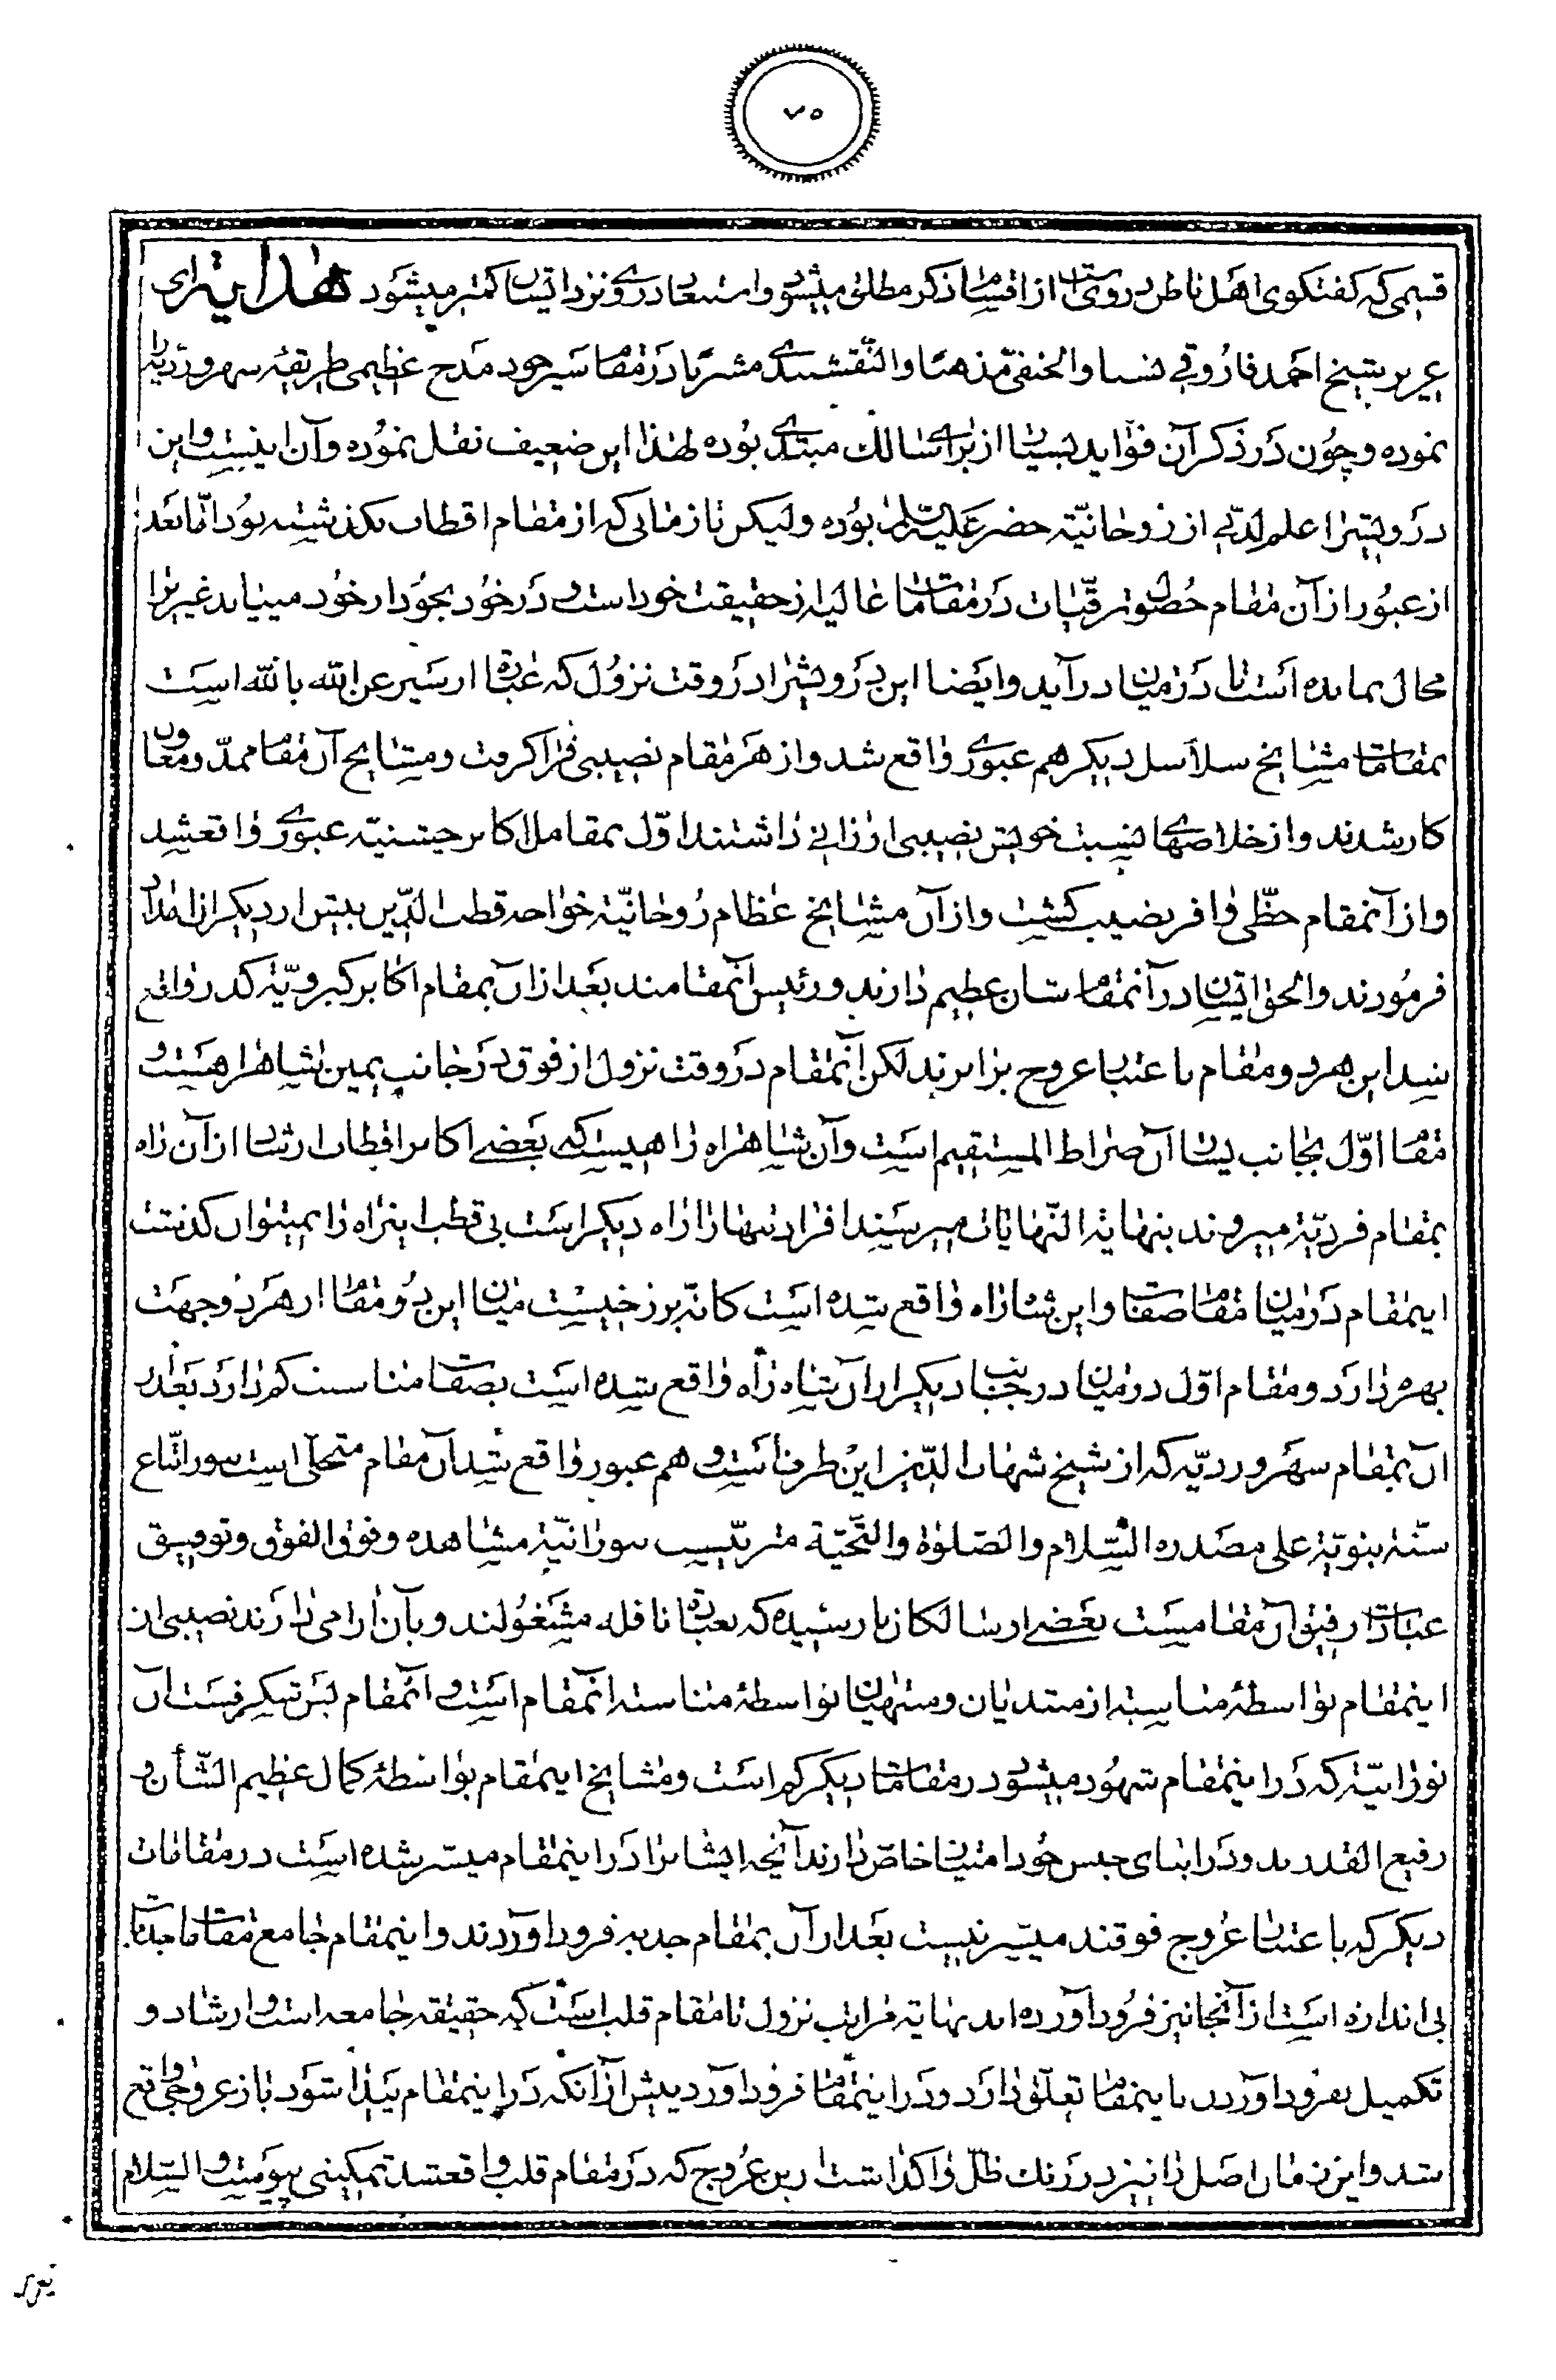 ٧٥
قسمی که کفتکوی اهل باطن در وی است از اقسام ذکر مطلق میشود و استبعاد در وی نزد ایشان کمتر میشود هدایة ای
عزیز شیخ احمد فاروقی نسبا والحنفی مذهبا والنقشبندی مشربا در مقام سیر خود مدح عظیمی طریقهٔ سهروردیه را
نموده و چون در ذکر آن فواید بسیار از برای سالک مبتدی بوده لهذا این ضعیف نقل نموده و آن اینست و این
درویش را علم لدنی از روحانیة حضر علیه السلام بوده ولیکن تا زمانی که از مقام اقطاب نکذشته بود امّا بعد
از عبور از آن مقام حصول ترقیات در مقامات عالیه از حقیقت خود است و در خود بخود از خود مییابد غیر را
مجال نمانده است تا در میان در آید وایضا این درویش را در وقت نزول که عبارة از سیر عن الله بالله است
بمقامات مشایخ سلاسل دیکر هم عبوری واقع شد و از هر مقام نصیبی فرا کرفت و مشایخ آن مقام ممدّ و معاون
کار شدند و از خلاصهای نسبت خویش نصیبی ارزانی داشتند اوّل بمقام اکابر چشتیّه عبوری واقعشد
و از آنمقام حظّی وافر نصیب کشت و از آن مشایخ عظام روحانیّة خواجه قطب الدّین بیش از دیکران امداد
فرمودند والحق ایشان در آنمقام شان عظیم دارند و رئیس آنمقامند بعد از آن بمقام اکابر کبرویّة کذر واقع
شد این هر دو مقام با عتبار عروج برابرند لکن آنمقام در وقت نزول از فوق در جانب یمین شاهراه هست و
مقام اوّل بجانب یسار آن صراط المستقیم است و آن شاهراه راهیست که بعضی اکابر اقطاب ارشاد از آن راه
بمقام فردیّة میروند بنهایة النّهایات میرسند افراد تنها را راه دیکر است بی قطب اینراه را نمیتوان کذشت
اینمقام در میان مقام صفات و این شاه راه واقع شده است کانّه برزخیست میان این دو مقام از هر دو جهت
بهره دارد و مقام اوّل در میان در جانب دیکر از آن شاه راه واقع شده است بصفات مناسبت کم دارد بعد از
آن بمقام سهروردیّه که از شیخ شهاب الدّین این طرف است و هم عبور واقع شد آن مقام متحلّی است بنور اتّباع
سنّة نبویّة علی مصدره السّلام والصّلوة والتّحیّة متزیّنست بنورانیّة مشاهده و فوق الفوق و توفیق
عبادات رفیق آن مقامست بعضی از سالکان نا رسیده که بعبادة نافله مشغولند و بآن ارامی دارند نصیبی از
اینمقام بواسطهٔ مناسبة از مبتدیان و منتهیان بواسطهٔ مناسبة انمقام است و انمقام بس شکرفست آن
نورانیّة که در اینمقام شهود میشود در مقامات دیکر کم است و مشایخ اینمقام بواسطهٔ کمال عظیم الشّأن و
رفیع القدرند و در ابنای جنس خود امتیاز خاص دارند آنچه ایشانرا در اینمقام میسّر شده است در مقامات
دیکر که با عتبار عروج فوقند میسّر نیست بعد از آن بمقام جذبه فرود اوردند و اینمقام جامع مقامات جذبات
بی اندازه است از آنجا نیز فرود آورده اند نهایة مراتب نزول تا مقام قلب است که حقیقة جامعه است و ارشاد و
تکمیل بفرود آوردن باینمقام تعلّق دارد و در اینمقام فرود اورد پیش از آنکه در اینمقام پیدا شود باز عروجی واقع
شد و این زمان اصل را نیز در رنک ظلّ وا کذاشت این عروج که در مقام قلب واقعشد تمکینی پیوست والسّلام